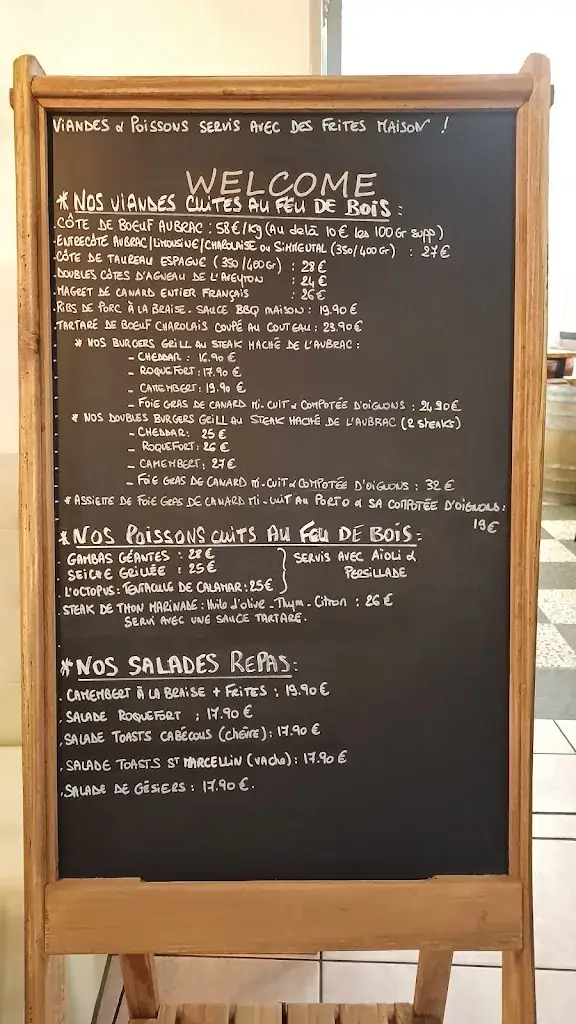 VIANDES & POISSONS SERVIS AVEC DES FRITES MAISON !
WELCOME
* NOS VIANDES CUITES AU FEU DE BOIS :
. CÔTE DE BOEUF AUBRAC : 58€/Kg (Au delà 10€ les 100Gr supp)
. ENTRECÔTE AUBRAC/LIMOUSINE/CHAROLAISE ou SIMMENTAL (350/400Gr) : 27€
. CÔTE DE TAUREAU ESPAGNE (350/400Gr) : 28€
. DOUBLES CÔTES D'AGNEAU DE L'AVEYRON : 24€
. MAGRET DE CANARD ENTIER FRANÇAIS : 26€
. RIBS DE PORC À LA BRAISE - SAUCE BBQ MAISON : 19.90€
. TARTARE DE BOEUF CHAROLAIS COUPÉ AU COUTEAU : 23.90€
* NOS BURGERS GRILL AU STEAK HACHÉ DE L'AUBRAC :
- CHEDDAR : 16.90€
- ROQUEFORT : 17.90€
- CAMEMBERT : 19.90€
- FOIE GRAS DE CANARD MI-CUIT & COMPOTÉE D'OIGNONS : 24,90€
* NOS DOUBLES BURGERS GRILL AU STEAK HACHÉ DE L'AUBRAC (2 steaks)
- CHEDDAR : 25€
- ROQUEFORT : 26€
- CAMEMBERT : 27€
- FOIE GRAS DE CANARD MI-CUIT & COMPOTÉE D'OIGNONS : 32€
* ASSIETTE DE FOIE GRAS DE CANARD MI-CUIT AU PORTO & SA COMPOTÉE D'OIGNONS :
19€
* NOS POISSONS CUITS AU FEU DE BOIS :
. GAMBAS GÉANTES : 28€
. SEICHE GRILLÉE : 25€
. L'OCTOPUS : TENTACULE DE CALAMAR : 25€
SERVIS AVEC AÏOLI &
PERSILLADE
. STEAK DE THON MARINADE : Huile d'olive - Thym - Citron : 26€
SERVI AVEC UNE SAUCE TARTARE.
* NOS SALADES REPAS :
. CAMEMBERT À LA BRAISE + FRITES : 19.90€
. SALADE ROQUEFORT : 17.90€
. SALADE TOASTS CABÉCOUS (chèvre) : 17.90€
. SALADE TOASTS ST MARCELLIN (vache) : 17.90€
. SALADE DE GÉSIERS : 17.90€.